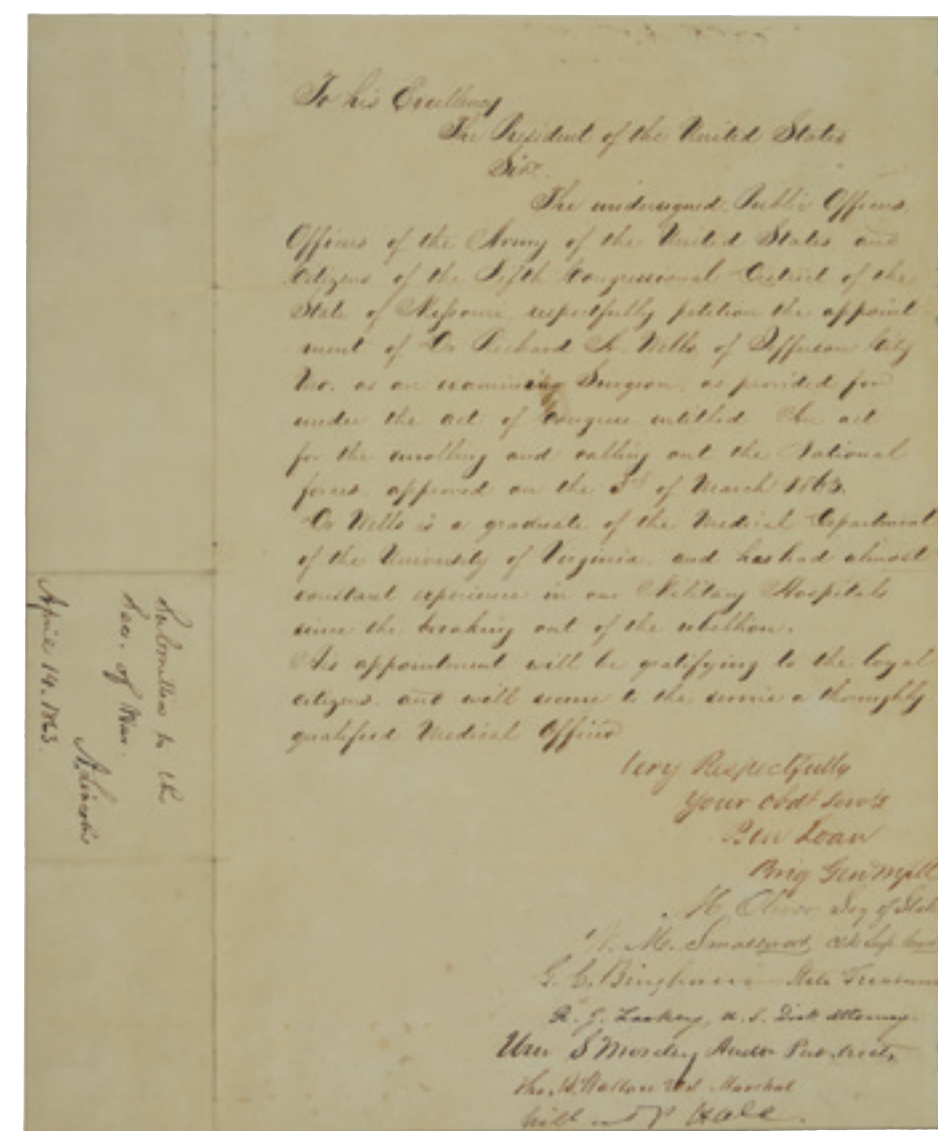 To his Excellency
The President of the United States
Sir.
The undersigned Public Officers,
Officers of the Army of the United States and
Citizens of the Fifth Congressional District of the
State of Missouri, respectfully petition the appoint
ment of Dr Richard Wells, of Jefferson City
Mo. as an examining Surgeon, as provided for
under the act of Congress entitled An act
for the enrolling and calling out the National
forces, approved on the 3rd of March 1863.
Dr Wells is a graduate of the Medical Department
of the University of Virginia, and has had almost
constant experience in our Military Hospitals
since the breaking out of the rebellion.
His appointment will be gratifying to the loyal
citizens, and will secure to the service a thoroughly
qualified Medical Officer
Very Respectfully
Your obdt servts
Ben Loan
Brig Gen
M Oliver Secy of State
W. M. Smallwood
G. C. Bingham State Treasurer
U.S. Dist Attorney
Wm S Mosely
Tho. B. Wallace U.S. Marshal
Willard P Hall
Submitted to the
Sec. of War.
A. Lincoln
April 14. 1863.